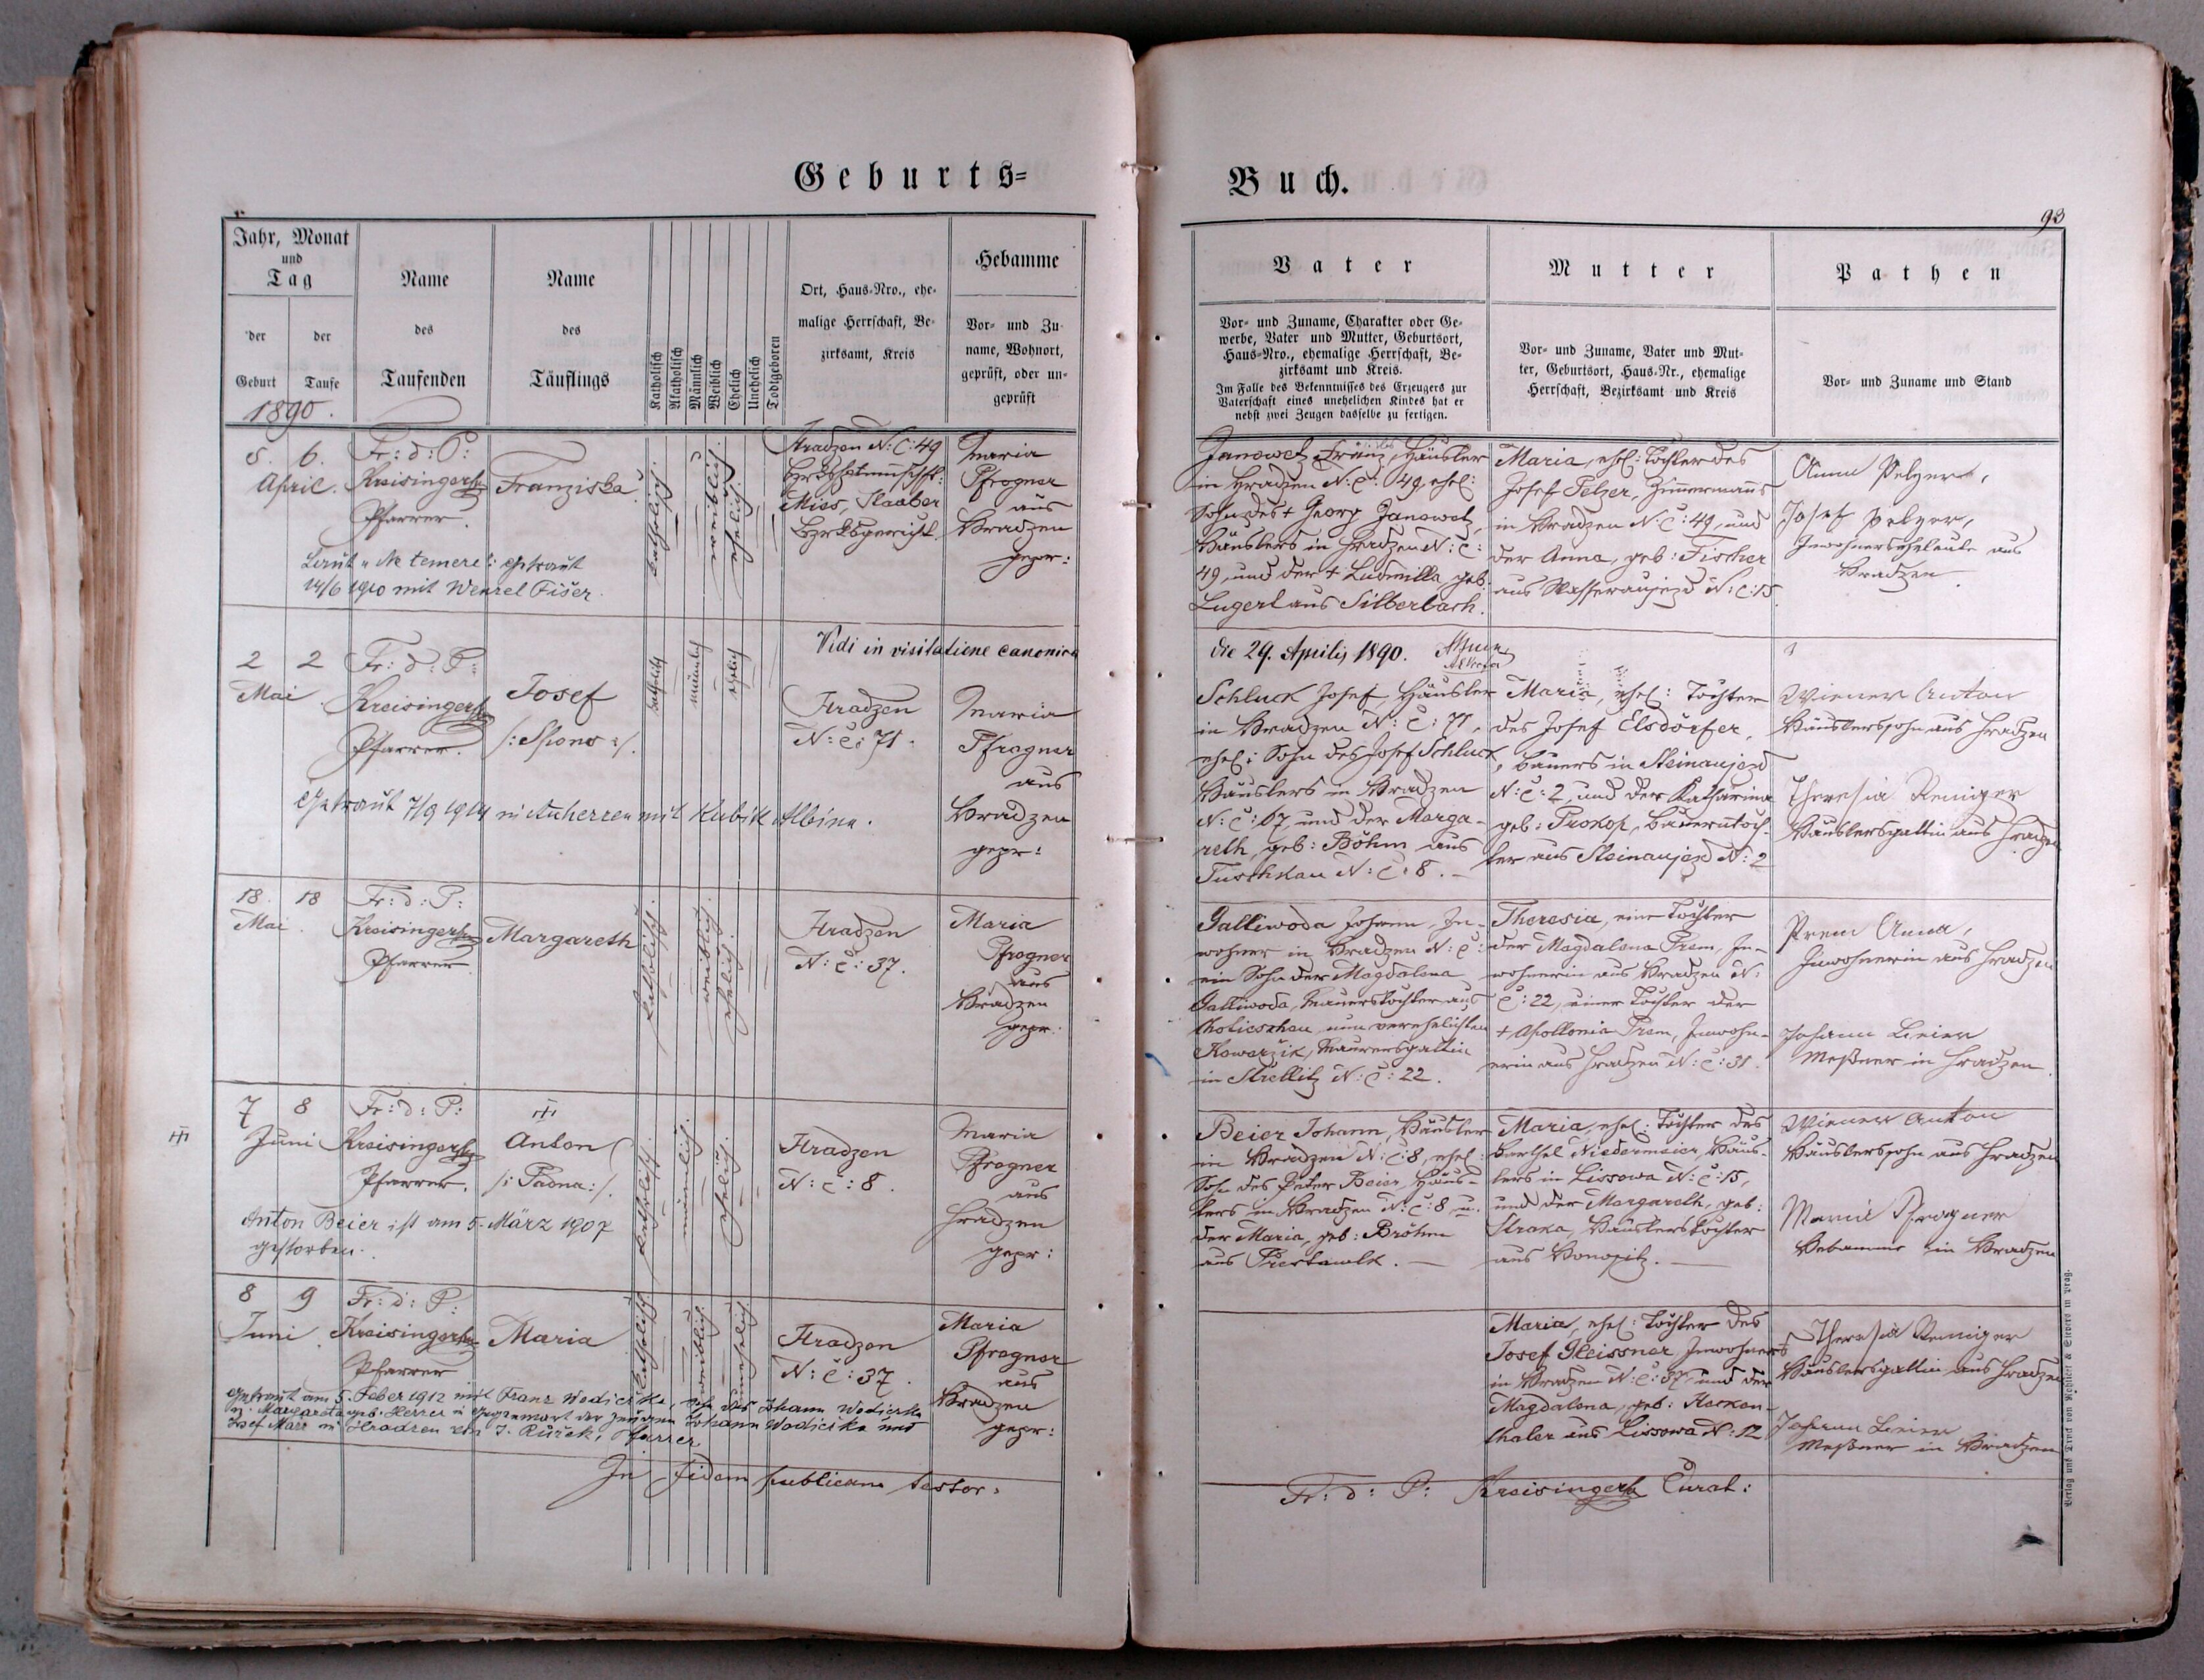 Geburts=
Buch.
93
Jahr, Monat
und
Tag
der
Geburt
der
Taufe
Name
des
Taufenden
Name
des
Täuflings
Katholisch
Akatholisch
Männlich
Weiblich
Ehelich
Unehelich
Todtgeboren
Ort, Haus-Nro., ehe-
malige Herrschaft, Be-
zirksamt, Kreis
Hebamme
Vor- und Zu-
name, Wohnort,
geprüft, oder un-
geprüft
Vater
Vor- und Zuname, Charakter oder Ge-
werbe, Vater und Mutter, Geburtsort,
Haus-Nro., ehemalige Herrschaft, Be-
zirksamt und Kreis.
Im Falle des Bekenntnisses des Erzeugers zur
Vaterschaft eines unehelichen Kindes hat er
nebst zwei Zeugen dasselbe zu fertigen.
Mutter
Vor- und Zuname, Vater und Mut-
ter, Geburtsort, Haus-Nr., ehemalige
Herrschaft, Bezirksamt und Kreis
Pathen
Vor- und Zuname und Stand
1890.
5. 6.
April.
Fr: d: P:
Kreisinger
Pfarrer.
Franziska
katholisch.
weiblich.
ehelich.
Hradzen N: C: 49
Mies, Staaber
Bezirksgericht
Maria
Pfrogner
aus
Hradzen
gepr:
Janowetz Franz, Häusler
in Hradzen N: C: 49, ehel:
Sohn des + Georg Janowetz,
Häuslers in Hradzen N: C:
49, und der + Ludmilla geb.
Lugert aus Silberbach.
Maria, ehel: Tochter des
Josef Pelzer, Zimmermanns
in Hradzen N: C: 49, und
der Anna, geb: Fischer
aus Wasseraujezd N: C: 15
Anna Pelzer,
Josef Pelzer,
Inwohnerseheleute aus
Hradzen.
Laut "Ne temere": getraut
14/6 1910 mit Wenzel Fišer.
Vidi in visitatione canonica
die 29. Aprilis 1890.
2 2
Mai
Fr: d: P:
Kreisinger
Pfarrer.
Josef
/: Spono :/.
katholisch
männlich
ehelich
Hradzen
N: C: 71.
Maria
Pfrogner
aus
Hradzen
gepr:
Schluck Josef, Häusler
in Hradzen N: C: 71,
ehel: Sohn des Josef Schluck,
Häuslers in Hradzen
N: C: 67, und der Marga-
reth, geb: Böhm aus
Tuschkau N: C: 8. —
Maria, ehel: Tochter
des Josef Elsdörfer,
Bauers in Steinaujezd
N: C: 2, und der Katharina
geb: Prokop, Bauerntoch-
ter aus Steinaujezd N: 2
Wiener Anton
Häuslerssohn aus Hradzen
Theresia Reniger
Häuslersgattin aus Hradzen
Getraut 7/9 1914 in Auherzen mit Kubik Albine.
18. 18
Mai.
Fr: d: P:
Kreisinger
Pfarrer
Margareth
katholisch.
weiblich.
ehelich.
Hradzen
N: C: 37.
Maria
Pfrogner
aus
Hradzen
gepr:
Galliwoda Johann, In-
wohner in Hradzen N: C:
ein Sohn der Magdalena
Galliwoda, Maurerstochter aus
Chotieschau nun verehelichten
Kowarzik, Maurersgattin
in Strellitz N: C: 22.
Theresia, eine Tochter
der Magdalena Prem, In-
wohnerin aus Hradzen N:
C: 22, einer Tochter der
+ Apollonia Prem, Inwohn-
erin aus Hradzen N: C: 31.
Prem Anna,
Inwohnerin aus Hradzen
Johann Beier
Meßner in Hradzen.
7 8
Juni
Fr: d: P:
Kreisinger
Pfarrer.
Anton
/: Padua :/.
katholisch.
männlich.
ehelich.
Hradzen
N: C: 8.
Maria
Pfrogner
aus
Hradzen
gepr:
Beier Johann, Häusler
in Hradzen N: C: 8, ehel:
Sohn des Peter Beier, Häus-
lers in Hradzen N: C: 8 u.
der Maria, geb: Bröhm
aus Prestawlk. —
Maria, ehel: Tochter des
Barthel Niedermeier, Häus-
lers in Lissowa N: C: 15,
und der Margareth, geb:
Straka, Häuslerstochter
aus Honositz. —
Wiener Anton
Häuslerssohn aus Hradzen
Maria Pfrogner
Hebamme in Hradzen
Anton Beier ist am 5. März 1907
gestorben.
8 9
Juni.
Fr: d: P:
Kreisinger
Pfarrer
Maria
katholisch.
weiblich.
unehelich.
Hradzen
N: C: 37.
Maria
Pfrogner
aus
Hradzen
gepr:
Maria, ehel: Tochter des
Josef Gleissner, Inwohners
in Hradzen N: C: 37, und der
Magdalena, geb:
thaler aus Lissowa N: 12
Theresia Reniger
Häuslersgattin aus Hradzen
Johann Beier
Meßner in Hradzen
Getraut am 5. Feber 1912 mit Franz Wodiczka, Sohn des Johann Wodiczka
u. Margareta geb. Herrer in Gegenwart der Zeugen Johann Wodiczka und
Josef Marz in Hradzen von J. Růžek, Pfarrer
In fidem publicam testor:
Fr: d: P: Kreisinger Curat:
Verlag und Druck von Rohliček & Sievers in Prag.